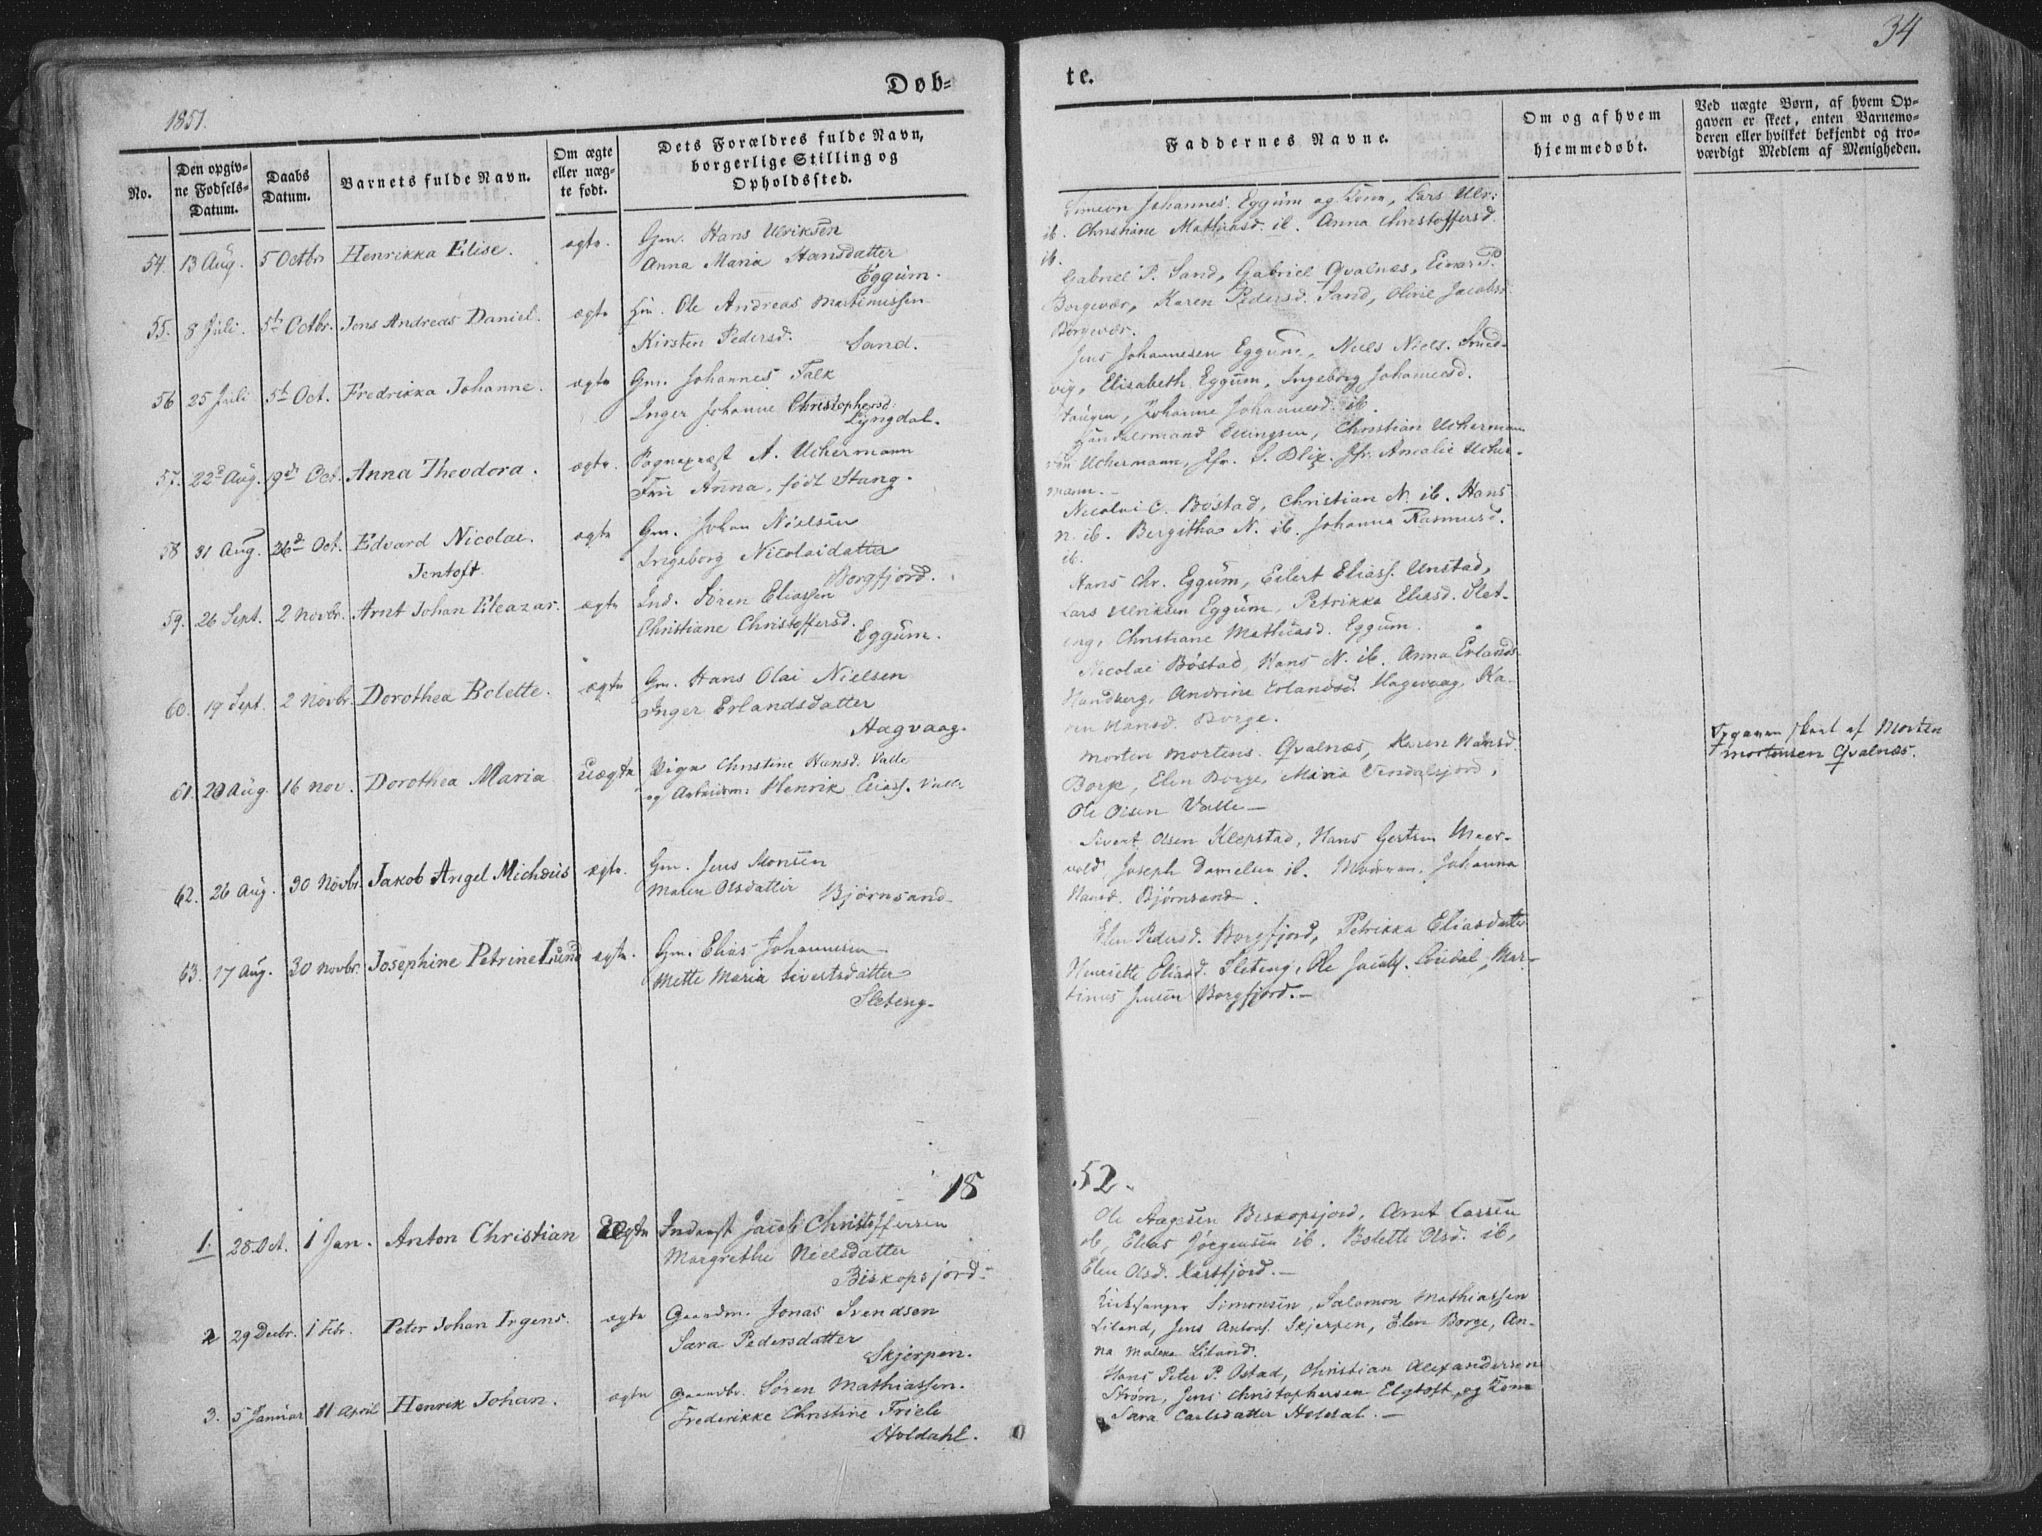 34
1851.
Døb-
te.
No.
Den opgiv-
ne Fødsels-
Datum.
Daabs
Datum.
Barnets fulde Navn.
Om ægte
eller uæg-
te født.
Dets Forældres fulde Navn,
borgerlige Stilling og
Opholdssted.
Faddernes Navne.
Om og af hvem
hjemmedøbt.
Ved uægte Børn, af hvem Op-
gaven er skeet, enten Barnemo-
deren eller hvilket bekjendt og tro-
værdigt Medlem af Menigheden.
54. 13 Aug. 5 Octbr Henrikka Elise. ægte. Gm. Hans Ulriksen
Anna Maria Hansdatter
Eggum.
Simeon Johannes. Eggum og Kone, Lars Ulr:
ib. Christiane Mathiasd. ib. Anna Christoffersd.
ib.
55. 8 Juli. 5te Octbr. Jens Andreas Daniel. ægte Gm. Ole Andreas Martinussen
Kirsten Pedersd. Sand.
Gabriel P. Sand, Gabriel Qvalnæs, Einar P.
Borgevær, Karen Pedersd. Sand, Oline Jacobsd
Borgevær.
56 25 Juli 5te Oct. Fredrikka Johanne. ægte Gm. Johannes Falk
Inger Johanne Christophersd.
Lyngdal.
Jens Johannesen Eggum, Niels Niels. Smed-
vig, Elisabeth Eggum, Ingeborg Johannesd.
Johanne Johannesd. ib.
57. 22d Aug. 19de Oct. Anna Theodora. ægte. Sognepræst A. Uchermann
Fru Anna, født Stang.
Handelsmand Ellingsen, Christian Uchermann
Uchermann, Jfr. S. Blix. Jfr. Amalie Ucher-
mann.-
58 31 Aug. 26d Oct. Edvard Nicolai. ægte Gm. Johan Nielsen
Jentoft. Ingeborg Nicolaidatter
Borgfjord.
Nicolai C. Bøstad, Christian N. ib. Hans
N. ib. Bergitha N. ib. Johanna Rasmusd.
ib.
59. 26 Sept. 2 Novbr. Arnt Johan Eleazar. ægte Ind. Søren Eliassen
Christiane Christoffersd.
Eggum.
Hans Chr. Eggum, Eilert Eliass. Unstad,
Lars Ulriksen Eggum, Petrikka Eliasd. Slet-
eng, Christiane Mathiasd. Eggum.
60. 19 Sept. 2 Novbr. Dorothea Bolette. ægte Gm. Hans Olai Nielsen
Inger Erlandsdatter
Hagvaag.
Nicolai Bøstad, Hans N. ib. Anna Erlands.
Handberg, Andrine Erlandsd. Hagevaag, Ka-
ren Hansd. Borge.
61. 20 Aug. 16 Nov. Dorothea Maria Uægte Pige Christine Hansd. Valle
og Arbeidsm: Henrik Eliass. Valle
Morten Mortens. Qvalnæs, Karen Hansd.
Borge, Elen Borge, Maria
Ole Olsen Valle—
Opgaven skeet af Morten
Mortensen Qvalnæs.
62. 26 Aug. 30 Novbr. Jakob Angel Michæus ægte. Gm. Jens Monsen
Maren Olsdatter Bjørnsand
Sivert Olsen Klepstad, Hans Gertsen Meer-
vold, Joseph Danielsen ib. Johanna
Hansd. Bjørnsand.
63. 17 Aug. 30 Novbr. Josephine Petrine Lund ægte. Gm. Elias Johannesen
Mette Maria Sivertsdatter
Sleteng.
Elen Pedersd. Borgfjord, Petrikka Eliasdatter
Henriette Eliasd. Sleteng, Ole Jacobs. Mar-
tinus Jensen Borgfjord.—
18
52.
1. 28 Oct. 1 Jan. Anton Christian Uægte Inderst Jacob Christoffersen
Margrethe Nielsdatter
Biskopsfjord.
Ole Aagesen Biskopsjord, Arnt Larsen
ib, Elias Jørgensen ib. Bolette Olsd. ib,
Elen Olsd. Kartfjord.—
2 29 Decbr. 1 Febr. Peter Johan Irgens. ægte Gaardm. Jonas Svendsen
Sara Pedersdatter
Skjerpen.
Kirkesanger Simonsen, Salomon Mathiassen
Liland, Jens Antons. Skjerpen, Elen Borge, An-
na Malena Liland.
3. 5 Januar 11 April Henrik Johan. ægte Gaardbr. Søren Mathiassen.
Frederikke Christine Friele
Holdahl.
Hans Peter P. Ostad, Christian Alexandersen
Strøm, Jens Christophersen Elgtoft og Kone
Sara Carlsdatter Holdal.—